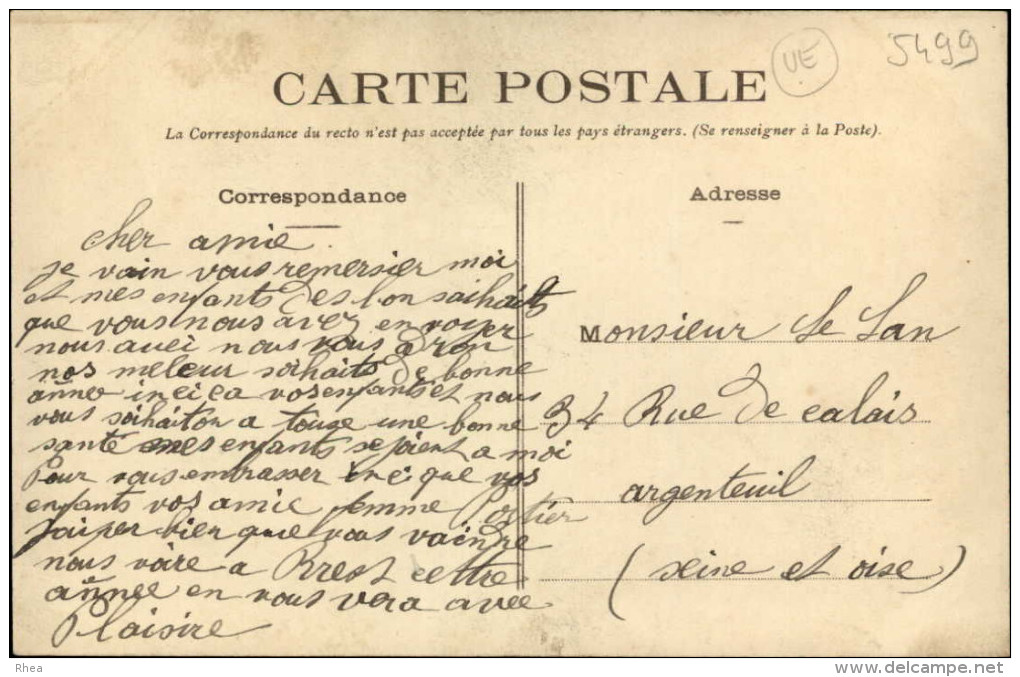 UE
5499
CARTE POSTALE
La Correspondance du recto n'est pas acceptée par tous les pays étrangers. (Se renseigner à la Poste).
Correspondance
cher amie.
je vain vous remersier moi
et mes enfants des bon saihaits
que vous nous avez envoyer
nous auci nous vous adron
nos meleur soihaits de bonne
année inci ca vos enfants et nous
vous soihaiton a touse une bonne
santé mes enfants sejoient a moi
Pour vous embrasser inci que vos
enfants vos amie femme Postier
jaiper bien que vous vaindre
nous voire a Brest cettre
année en vous vera avec
Plaisire
Adresse
Monsieur Le San
34 Rue de calais
argenteuil
(seine et oise)
Rhea
www.delcampe.net